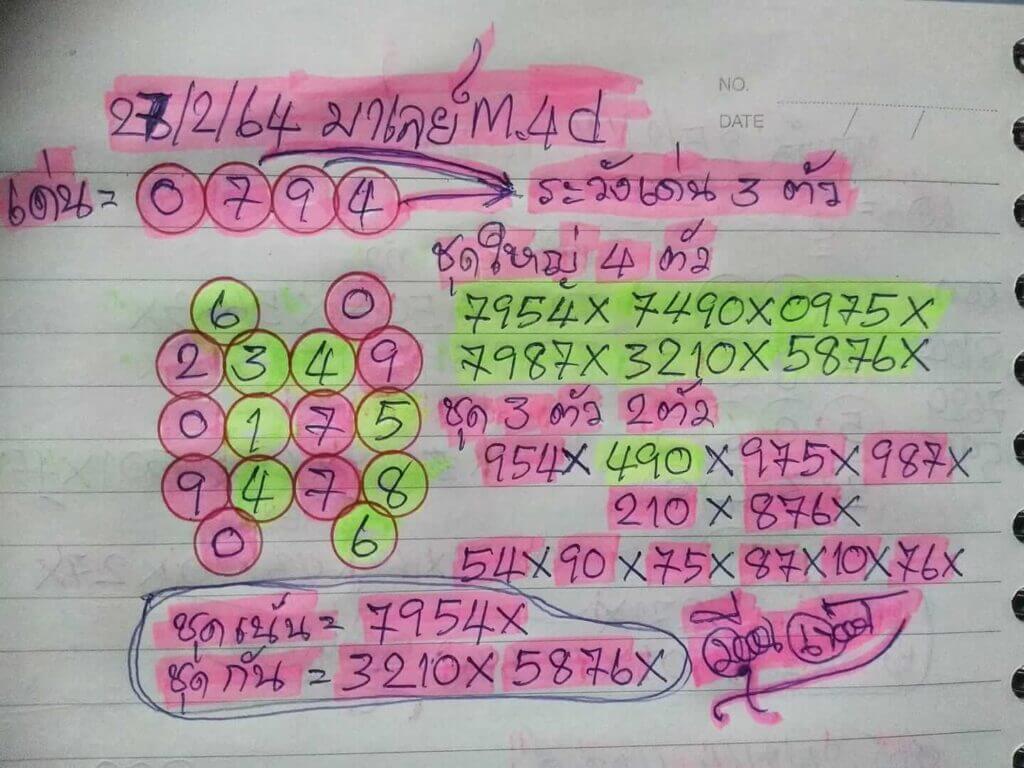 NO.
DATE / /
27/2/64 มาเลย์ M.4d
เด่น = 0 7 9 4 ระวังเด่น 3 ตัว
ชุดใหญ่ 4 ตัว
6 0
7954X 7490X 0975X
2 3 4 9
7987X 3210X 5876X
0 1 7 5
ชุด 3 ตัว 2 ตัว
9 4 7 8
954X 490X 975X 987X
210X 876X
0 6
54X 90X 75X 87X 10X 76X
ชุดเน้น = 7954X
ชุดกัน = 3210X 5876X